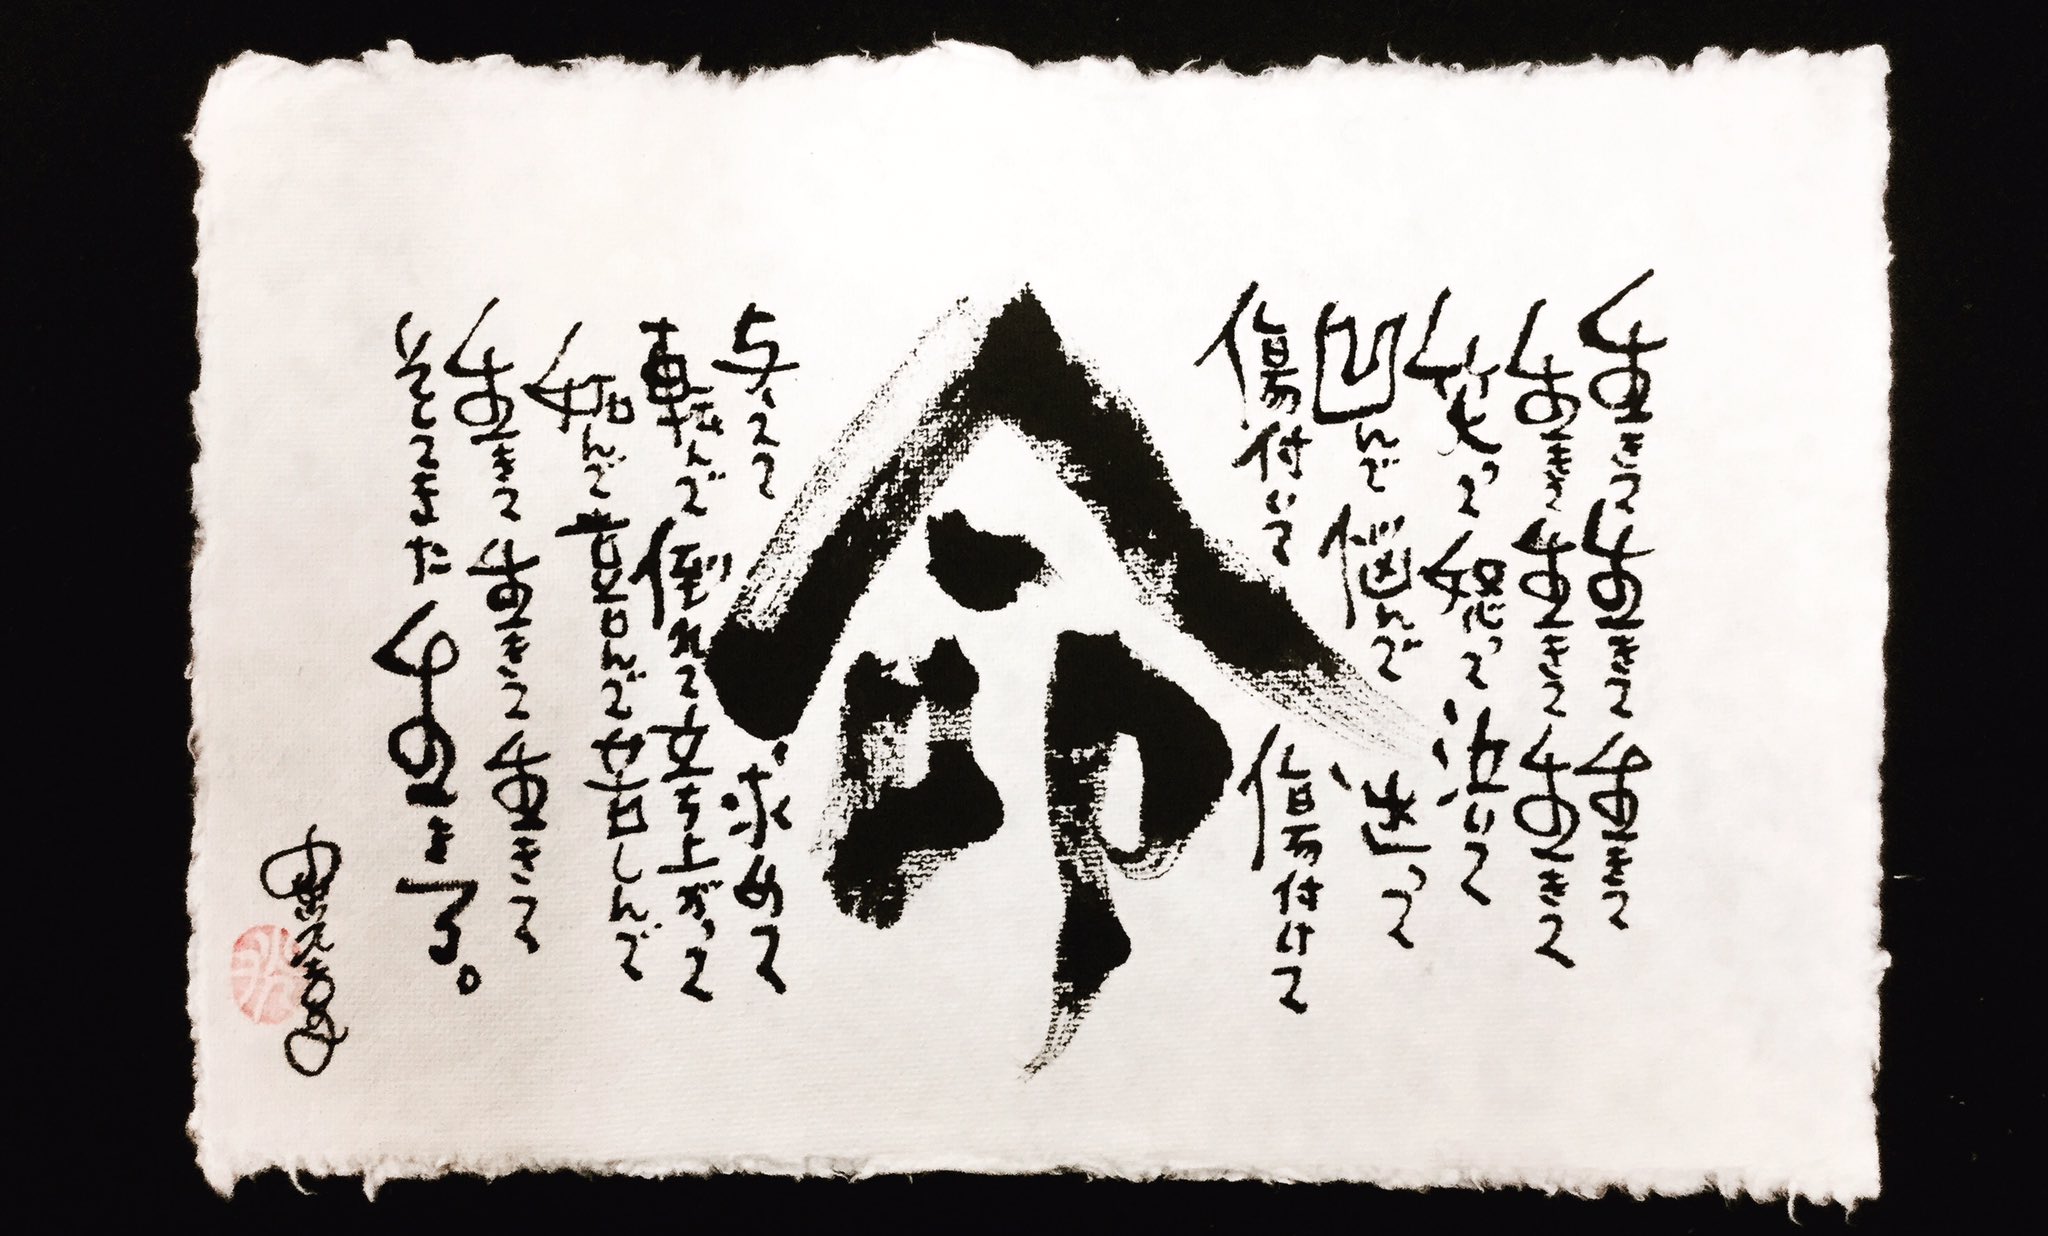 生きて生きて生きて
生きて生きて生きて
笑って怒って泣いて
凹んで悩んで迷って
傷付いて傷付けて
命
与えて求めて
転んで倒れて立ち上がって
妬んで喜んで苦しんで
生きて生きて生きて
また生きる。